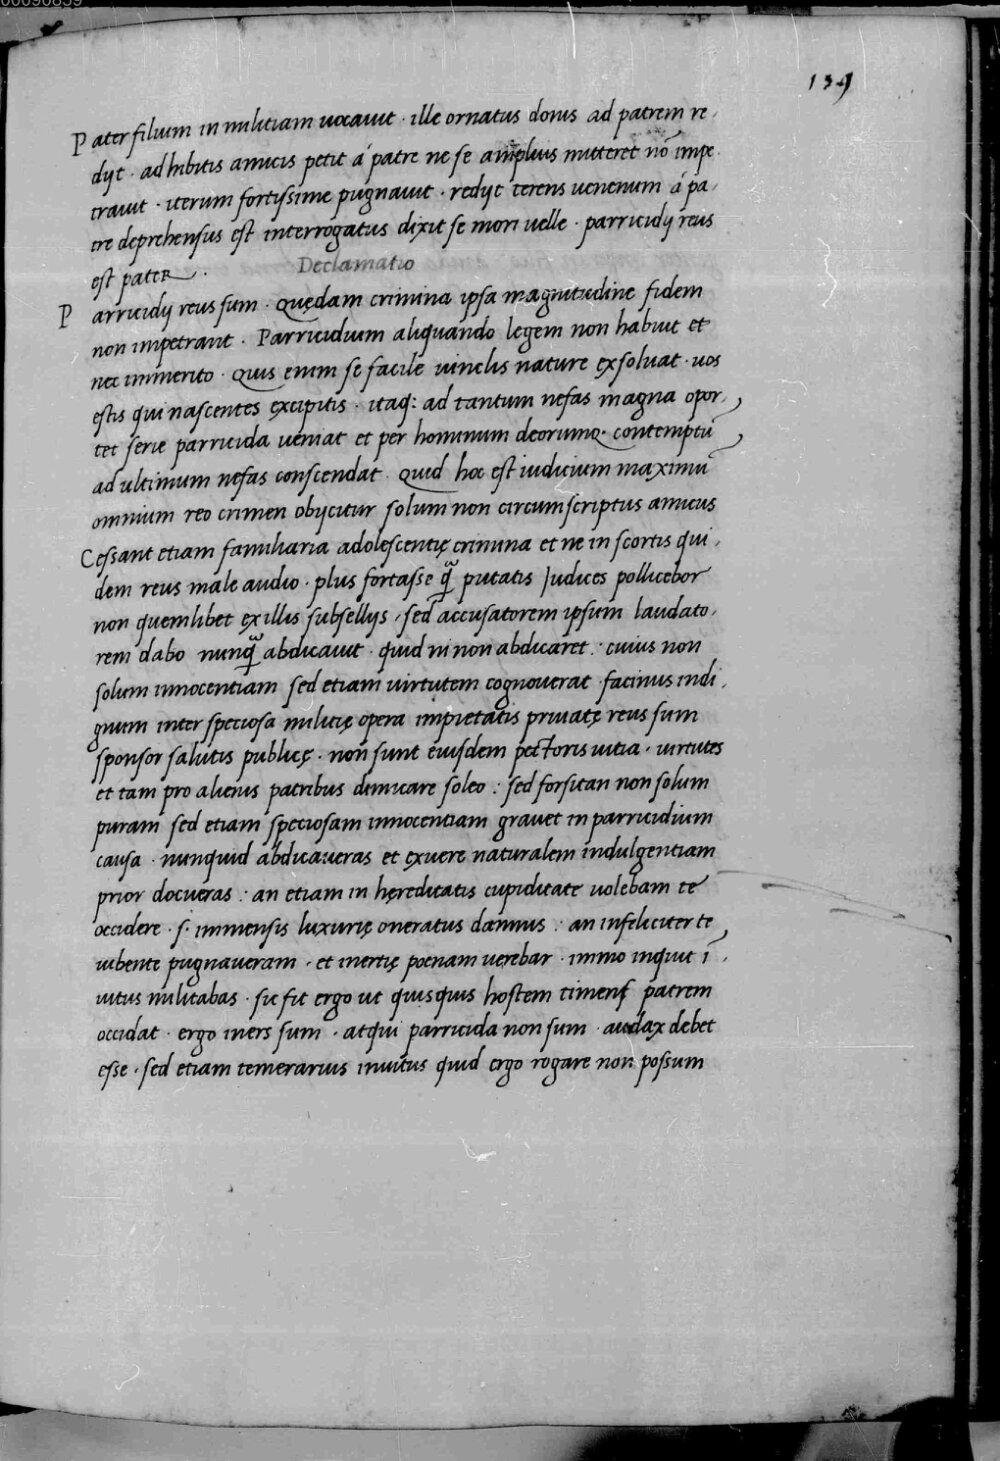 00090839
139
Pater filium in militiam uocauit · ille ornatus donis ad patrem re,
dijt · adhibitis amicis petit á patre ne se amplius mitteret nō impe
trauit · iterum fortissime pugnauit · redijt terens uenenum á pa,
tre deprehensus est interrogatus dixit se mori uelle · parricidij reus
est pater · Declamatio
Parricidij reus sum · Quędam crimina ipsa magnitudine fidem
non impetrant · Parricidium aliquando legem non habuit et
nec immerito · Quis enim se facile uinclis nature exsoluat · uos
estis qui nascentes excipitis · itaq: ad tantum nefas magna opor,
tet serie parricida ueniat et per hominum deorumq· contemptū
ad ultimum nefas conscendat · Quid hoc est iudicium maximū
omnium reo crimen obijcitur solum non circumscriptus amicus
Cessant etiam familiaria adolescentię crimina et ne in scortis qui,
dem reus male audio · plus fortasse q̄ putatis Judices pollicebor
non quemlibet ex illis subsellijs, sed accusatorem ipsum laudato,
rem dabo nunq̄ abdicauit · quid ni non abdicaret : cuius non
solum innocentiam sed etiam uirtutem cognouerat · facinus indi,
gnum inter speciosa militię opera impietatis priuatę reus sum
sponsor salutis publicę · non sunt eiusdem pectoris uitia · uirtutes
et tam pro alienis patribus dimicare soleo : sed forsitan non solum
puram sed etiam speciosam innocentiam grauet in parricidium
causa · nunquid abdicaueras et exuere naturalem indulgentiam
prior docueras : an etiam in hęreditatis cupiditate uolebam te
occidere · s· immensis luxurię oneratus damnus : an infeliciter te
iubente pugnaueram · et inertię poenam uerebar · immo inquit ī,
uitus militabas · sic fit ergo ut quisquis hostem timens patrem
occidat · ergo iners sum · atqui parricida non sum · audax debet
esse · sed etiam temerarius inuitus quid ergo rogare non possum